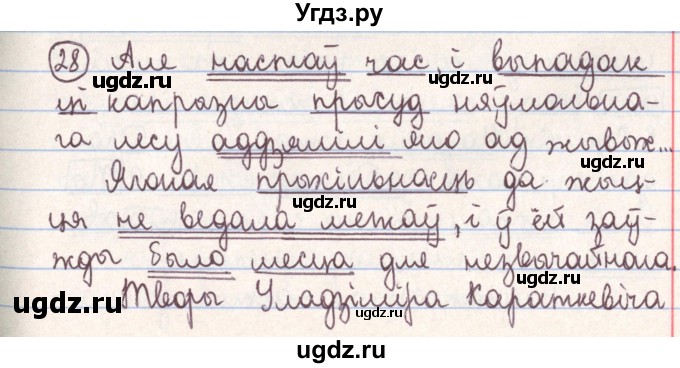 Угдз.ру
28 Але настаў час, і выпадак
ці капрызны прысуд няўмольна-
га лесу аддзялілі яго ад жывых...
Ягоная прыхільнасць да жыц-
ця не ведала межаў, і ў ёй заў-
жды было месца для незвычайнага.
Творы Уладзіміра Караткевіча
ugdz.ru
ugdz.ru
ugdz.ru
ugdz.ru
ugdz.ru
ugdz.ru
ugdz.ru
ugdz.ru
ugdz.ru
ugdz.ru
ugdz.ru
ugdz.ru